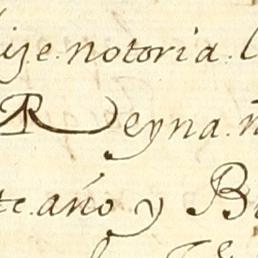 ije. notoria. l
Reyna. n
te. año y B